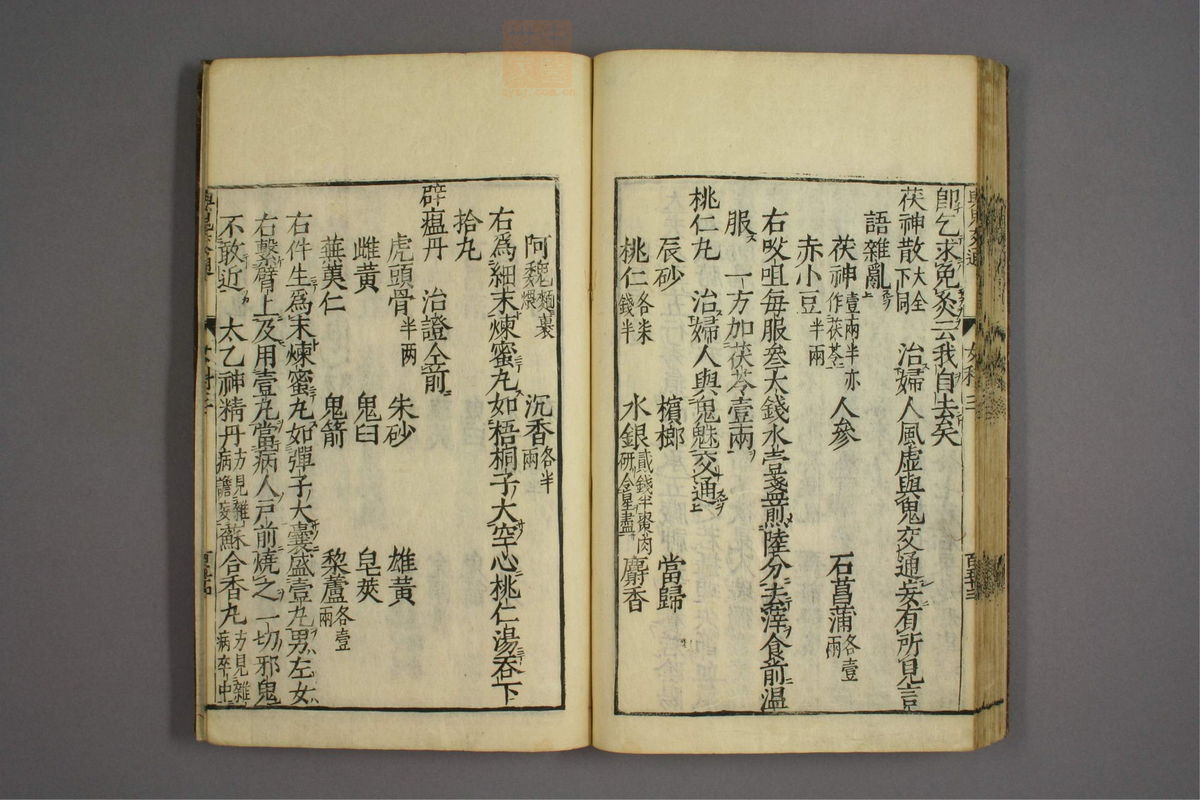 即乞求免灸云我自去矣
茯神散大全下同 治婦人風虛與鬼交通妄有所見言
語雜亂
茯神壹兩半亦作茯苓 人參 石菖蒲各壹兩
赤小豆半兩
右㕮咀每服叁大錢水壹盞煎陸分去滓食前溫
服 一方加茯苓壹兩
桃仁丸 治婦人與鬼魅交通
辰砂 檳榔 當歸
桃仁各柒錢半 水銀貳錢半棗肉研令星盡 麝香
阿魏麵裹煨 沉香各半兩
右為細末煉蜜丸如梧桐子大空心桃仁湯吞下
拾丸
辟瘟丹 治證仝前
虎頭骨半两 朱砂 雄黃
雌黃 鬼臼 皂莢
蕪荑仁 鬼箭 黎蘆各壹兩
右件生為末煉蜜丸如彈子大囊盛壹丸男左女
右繫臂上及用壹丸當病人戸前燒之一切邪鬼
不敢近 太乙神精丹方見雜病譫妄 蘇合香丸方見雜病卒中